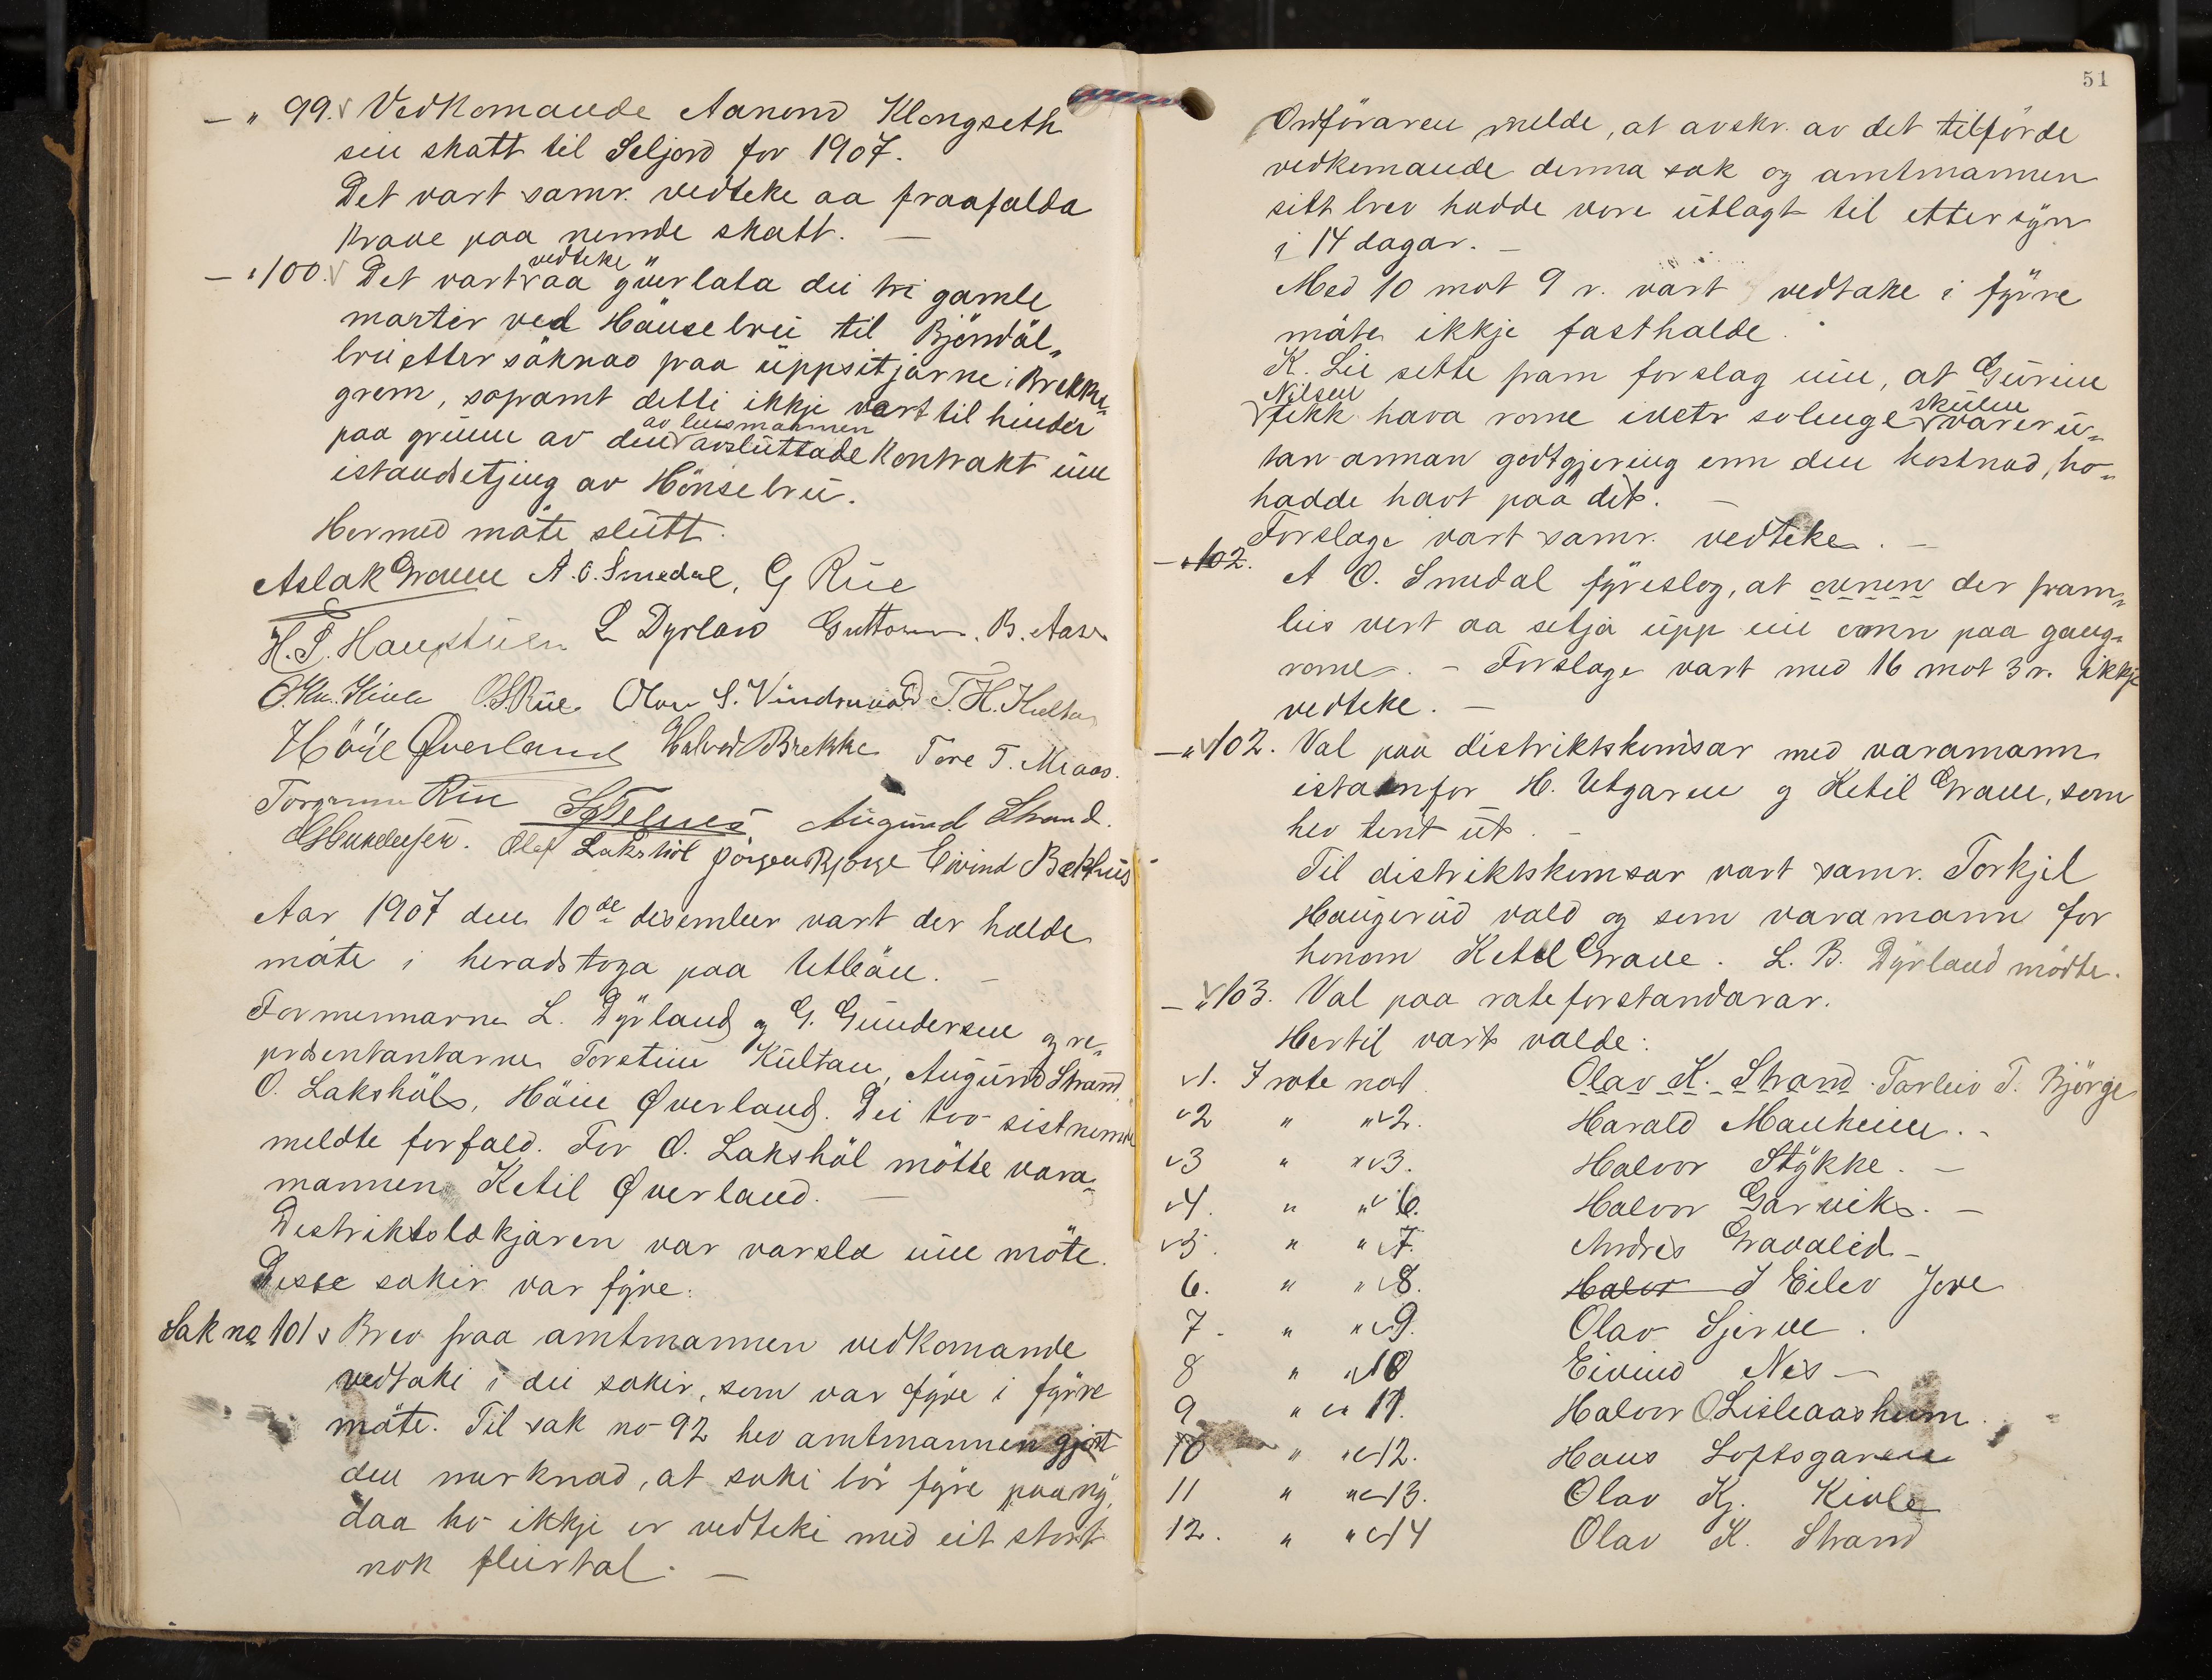 — " 99. Vedkomande Aanond Klongseth
sin skatt til Seljord for 1907.
Det vart samr. vedteke aa fraafalda
krave paa nemde skatt. —
— " 100. Det vart vedteke aa yverlata dei tri gamle
master ved Hönsebrui til Bjöndöl„
brui etter söknad fraa uppsitjarne i Brekke„
grem, soframt detti ikkje vart til hinder
paa grunn av den av lensmannen avsluttade kontrakt um
istandsetjing av Hönsebrui.
Hermed möte slutt.
Aslak Graver A. O. Smedal, G Rue
H. T. Haugstulen L Dyrland Guttorm B. Aase
O. Kj. Kivle O. S. Rue Olav S. Vindruvald T. H. Kultan
Höye Øverland Halvor Brekke Tore T. Meaas.
Torgrim Rue S Telnes Augund Strand.
G Gundersen. Olaf Lakshöl Jörgen Bjørge Eivind Bækhus
Aar 1907 den 10de desember vart der halde
möte i heradstoga paa Utböen. —
Formennarne L. Dyrland og G. Gundersen og re„
præsentantarne Torstein Kultan, Augund Strand
O. Lakshöl, Höie Øverland. Dei tvo sistnemde
meldte forfald. For O. Lakshöl mötte vara„
mannen Ketil Øverland. —
Distriktslækjaren var varsla um möte.
Desse sakir var fyre:
Sak no 101 Brev fraa amtmannen vedkomande
vedtaki i dei sakir, som var fyre i fyrre
möte. Til sak no 92 hev amtmannen gjort
den merknad, at saki bör fyre paa ny,
daa ho ikkje er vedteki med eit stort
nok fleirtal. —
51
Ordföraren melde, at avskr. av det tilförde
vedkomande denna sak og amtmannen
sitt brev hadde vore utlagt til ettersyn
i 14 dagar. —
Med 10 mot 9 r. vart vedtake i fyrre
möte ikkje fasthalde.
K. Lie sette fram forslag um, at Guruin
Nilsen fekk hava rome ivetr solenge skulen varer u„
tan annan godtgjering enn den kostnad, ho„
hadde havt paa det. —
Forslage vart samr. vedteke. —
— " 102.
A O. Smedal fyreslog, at ovnen der fram„
leis vert aa setja upp ein omn paa gang„
rome. — Forslage vart med 16 mot 3 r. ikkje
vedteke. —
— " 102. Val paa distriktskomsar med varamann
istadenfor H. Utgaren og Ketil Graver, som
hev tent ut. —
Til distriktskomsar vart samr. Torkjel
Haugerud vald og som varamann for
honom Ketil Grave. L. B. Dyrland mödte.
— " 103. Val paa roteforstandarar.
Hertil vart valde:
1. I rote no 1 Olav K. Strand. Tarleiv T. Björge
2 " " 2. Harald Manheim. -
3 " " 3. Halvor Stykke. —
4. " " 6. Halvor Garvik. —
5. " " 7. Andres Gravalid —
6. " " 8. Halvor I Eilev Jore
7. " " 9. Olav Sjerve.
8 " " 10 Eivind Nes —
9 " " 11. Halvor O. Lisleaasheim
10 " " 12. Hans Loftsgaren
11 " " 13. Olav Kj. Kivle
12. " " 14 Olav K. Strand